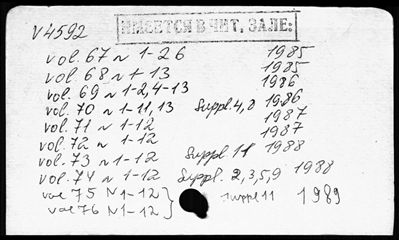 V4592
ИМЕЕТСЯ В ЧИТ. ЗАЛЕ:
vol. 67 N 1-26 1985
vol. 68 N 1-13 1985
vol. 69 N 1-2,4-13 1986
vol. 70 N 1-11,13 Suppl. 4,8 1986
vol. 71 N 1-12 1987
vol. 72 N 1-12 1987
vol. 73 N 1-12 Suppl. 11 1988
vol. 74 N 1-12 Suppl. 2,3,5,9 1988
vol 75 N 1-12 } suppl 11 1989
vol 76 N 1-12